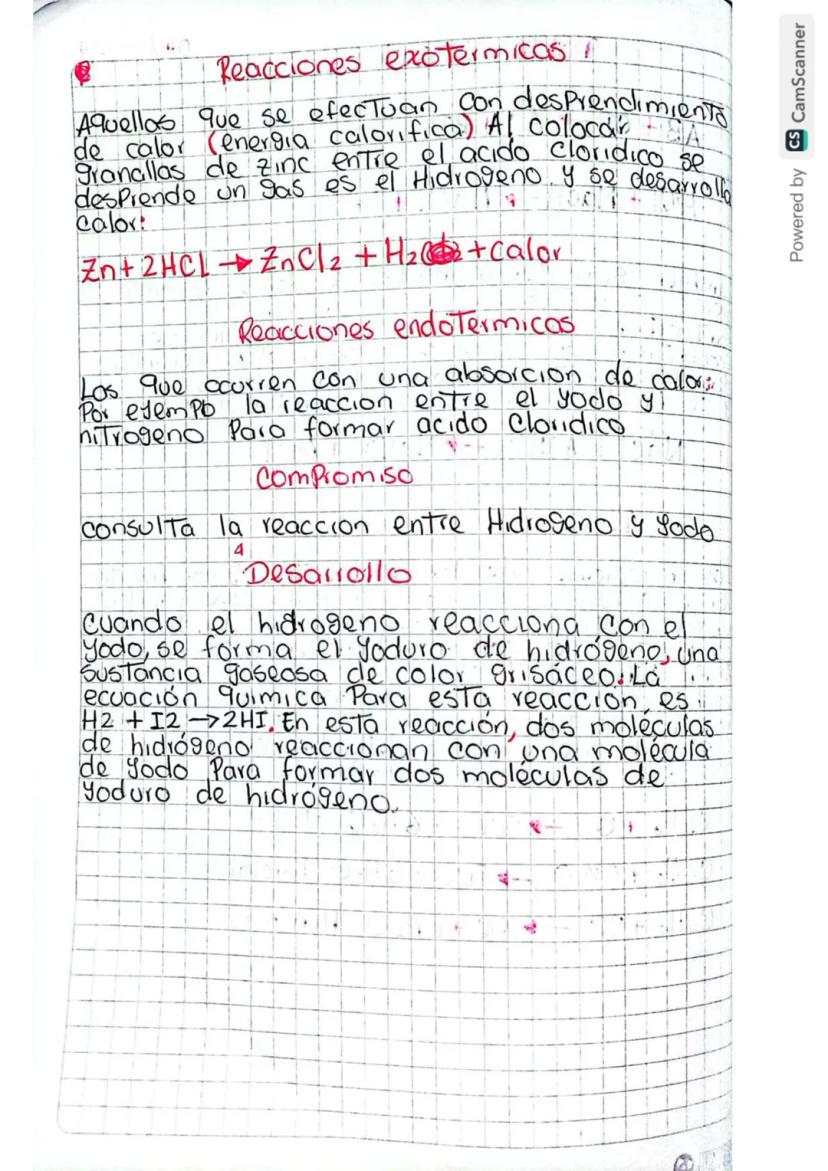 Reacciones exotermicas
Aquellas que se efectuan con desprendimiento
de calor (energia calorifica) Al colocar
granallas de zinc entre el acido Cloridico se
desprende un gas es el Hidrogeno y se desarrolla
calor:
Zn + 2HCl → ZnCl2 + H2 + calor
Reacciones endotermicas
Las que ocurren con una absorcion de calor;
Por ejemplo la reaccion entre el yodo y
nitrogeno Para formar acido Cloridico
Compromiso
consulta la reaccion entre Hidrogeno y yodo
Desarrollo
Cuando el hidrogeno reacciona con el
yodo, se forma el yoduro de hidrógeno, una
sustancia gaseosa de color grisáceo. La
ecuación química Para esta reacción es
H2 + I2 → 2HI. En esta reacción, dos moléculas
de hidrógeno reaccionan con una molécula
de yodo Para formar dos moléculas de
yoduro de hidrógeno.
Powered by CS CamScanner